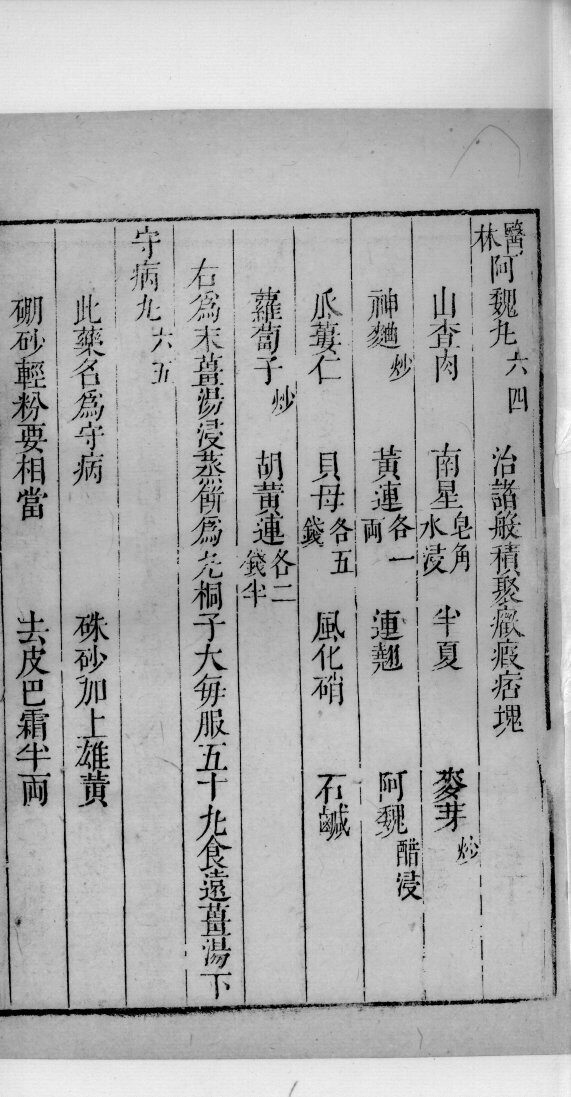 醫林阿魏丸六四 治諸般積聚癥瘕痞塊
山查肉 南星皂角水浸 半夏 麥芽炒
神麯炒 黃連各一兩 連翹 阿魏醋浸
瓜蔞仁 貝母各五錢 風化硝 石鹹
蘿蔔子炒 胡黃連各二錢半
右為末薑湯浸蒸餅為丸桐子大每服五十丸食遠薑湯下
守病丸六五
此藥名為守病 硃砂加上雄黃
硼砂輕粉要相當 去皮巴霜半両